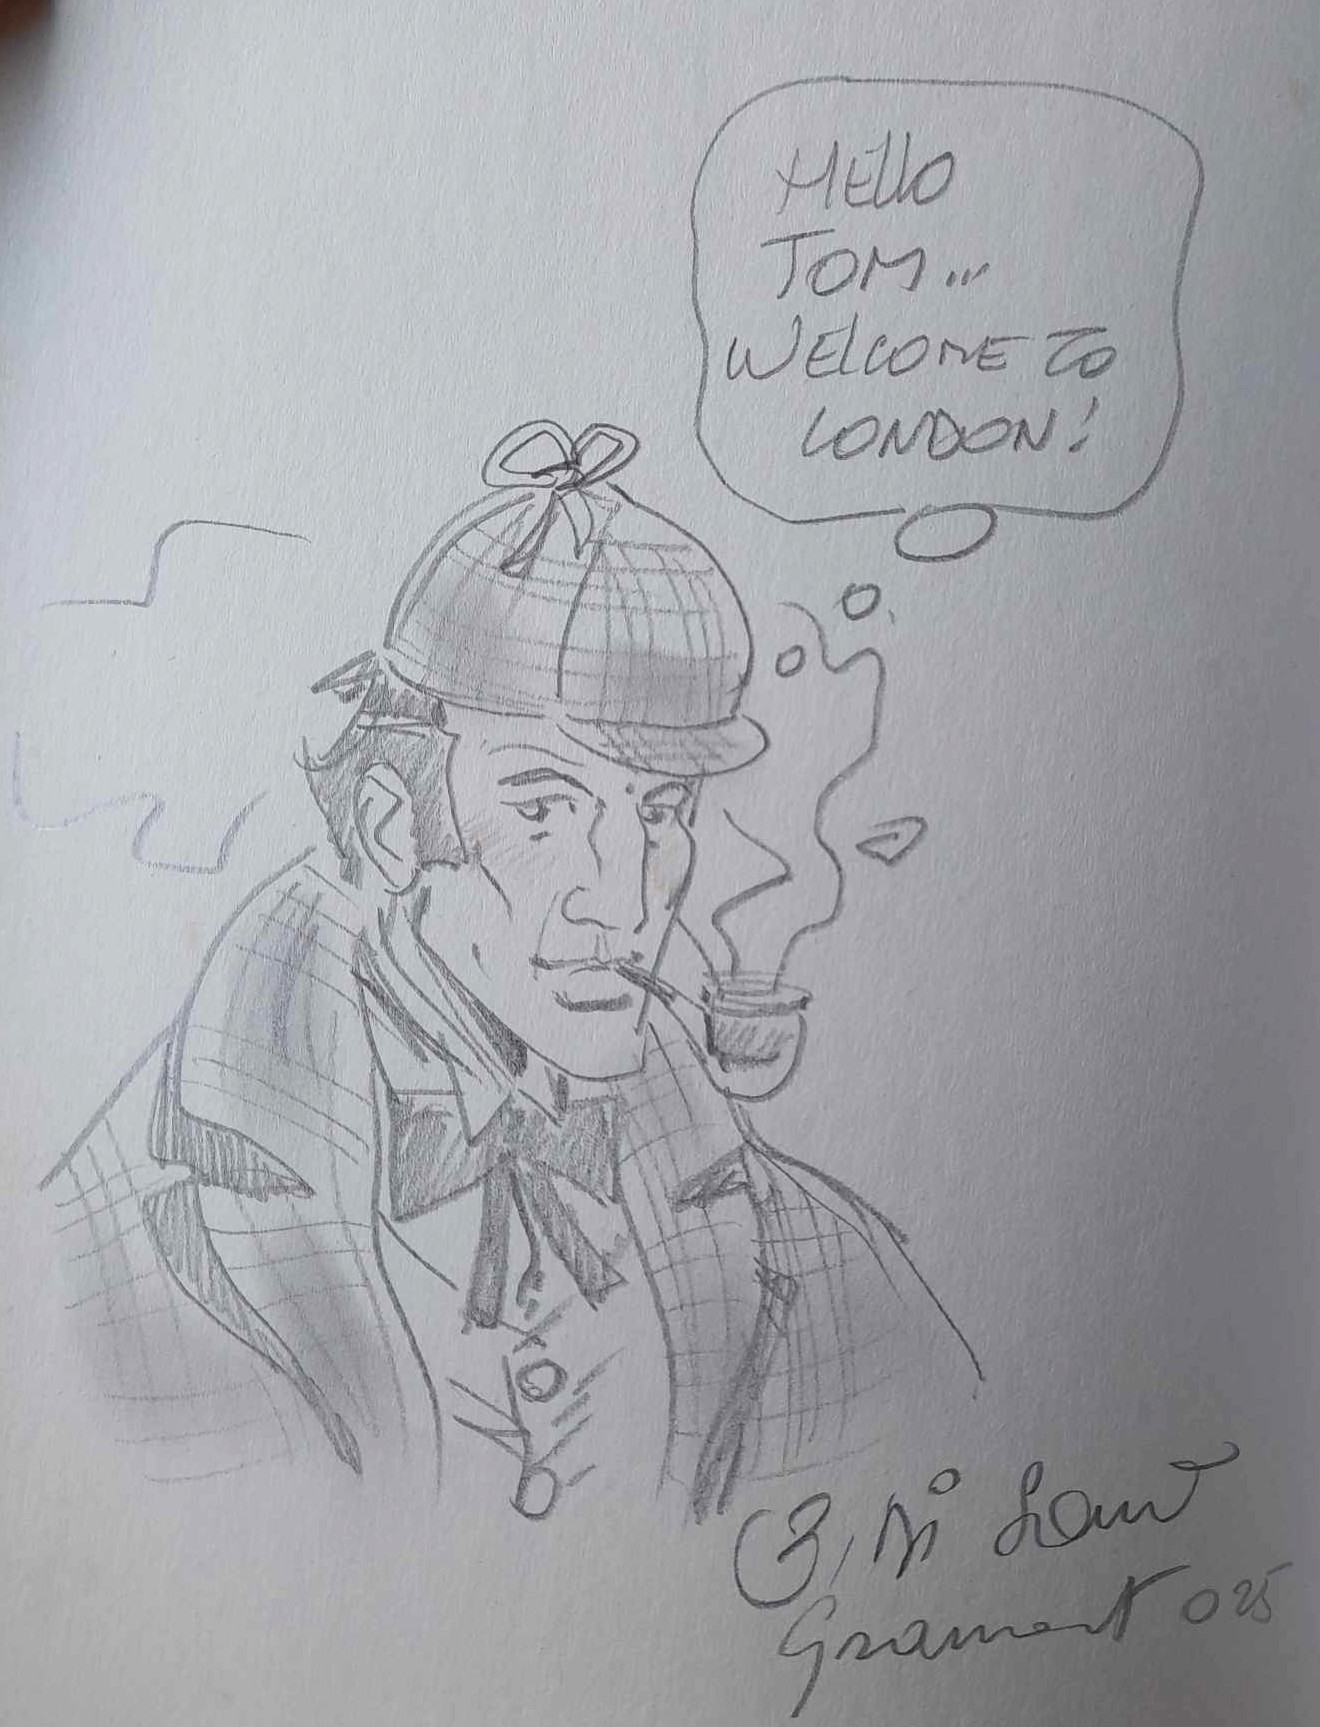 HELLO
TOM...
WELCOME TO
LONDON!
B. Di
Gramont 025